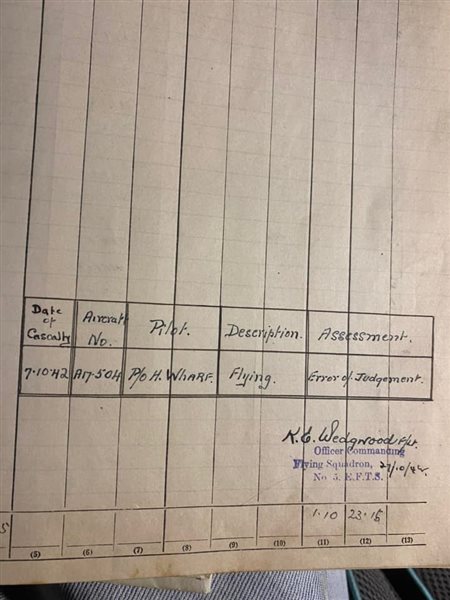 Date of Casualty Aircraft No. Pilot. Description. Assessment.
7.10.42 A17.504 P/O H. WHARF. Flying. Error of Judgement.
K.E. Wedgwood F/Lt.
Officer Commanding
Flying Squadron, 27/10/42.
No 5. E.F.T.S.
5 1.10 23.15
(5) (6) (7) (8) (9) (10) (11) (12) (13)